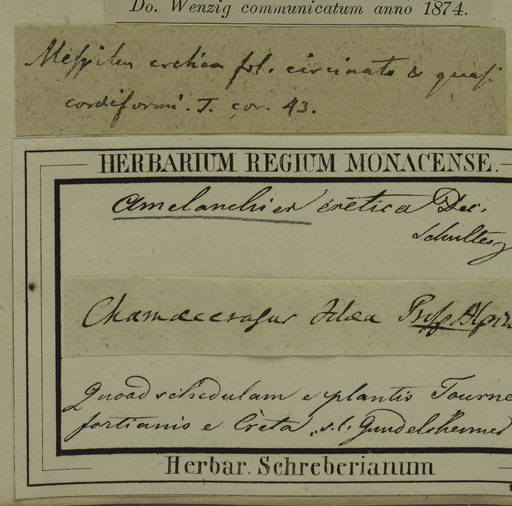 Do. Wenzig communicatum anno 1874.
Mespilus cretica fol. circinato & quasi
cordiformi. T. cor. 43.
HERBARIUM REGIUM MONACENSE.
Amelanchier cretica Dec.
Schultes
Chamaecerasus Idaea Alpin
Quoad schedulam e plantis Tourne
fortianis e Creta, s. l. Gundelsheimer
Herbar. Schreberianum